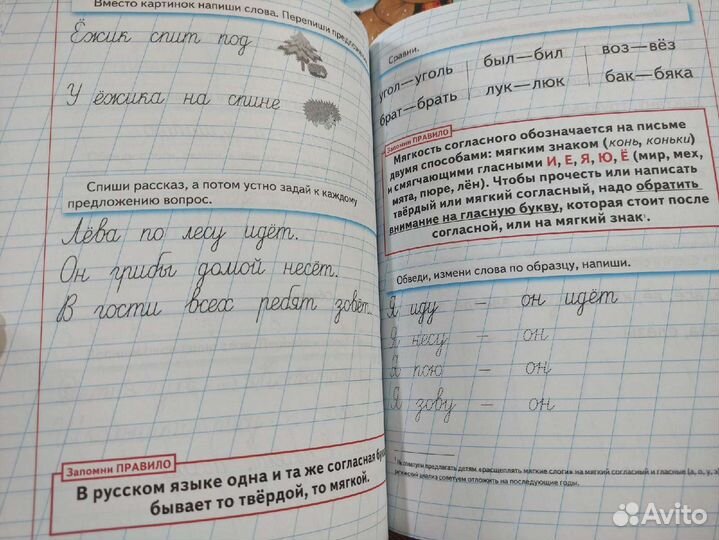 Вместо картинок напиши слова. Перепиши предложения
Ёжик спит под
У ёжика на спине
Спиши рассказ, а потом устно задай к каждому
предложению вопрос.
Лёва по лесу идёт.
Он грибы домой несёт.
В гости всех ребят зовёт.
Запомни ПРАВИЛО
В русском языке одна и та же согласная
бывает то твёрдой, то мягкой.
Сравни.
угол—уголь был—бил воз—вёз
брат—брать лук—люк бак—бяка
Запомни ПРАВИЛО
Мягкость согласного обозначается на письме
двумя способами: мягким знаком (конь, коньки)
и смягчающими гласными И, Е, Я, Ю, Ё (мир, мех,
мята, пюре, лён). Чтобы прочесть или написать
твёрдый или мягкий согласный, надо обратить
внимание на гласную букву, которая стоит после
согласной, или на мягкий знак¹.
Обведи, измени слова по образцу, напиши.
Я иду — он идёт
Я несу — он
Я пою — он
Я зову — он
¹ Не советуем предлагать детям «расщеплять мягкие слоги» на мягкий согласный и гласные (а, о, у, э
анализ советуем отложить на последующие годы.
Avito